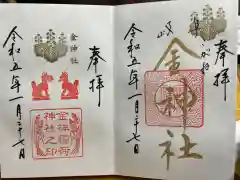 奉拝
岐
金神社
令和五年一月二十七日
奉拝
金神社
金祥稲荷
神社之印
令和五年一月二十七日